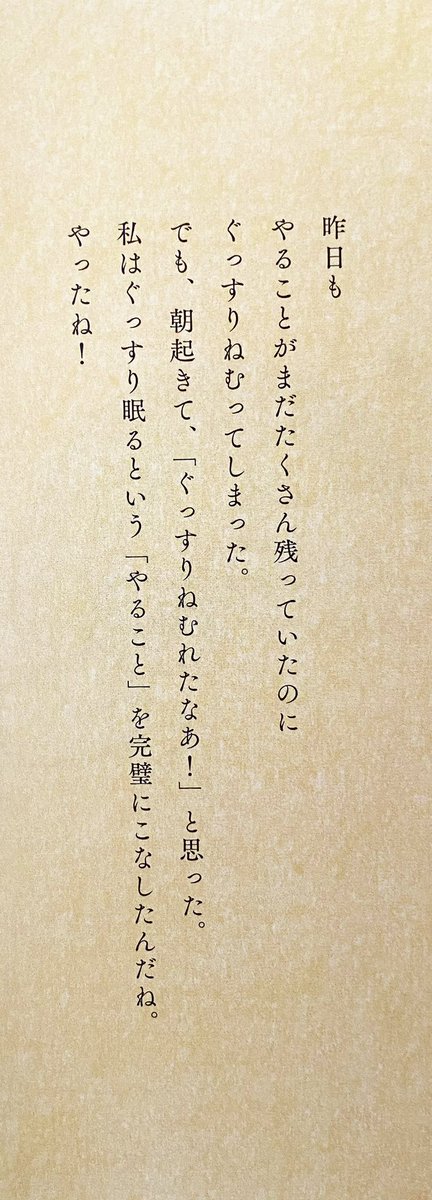 昨日も
やることがまだたくさん残っていたのに
ぐっすりねむってしまった。
でも、朝起きて、「ぐっすりねむれたなあ！」と思った。
私はぐっすり眠るという「やること」を完璧にこなしたんだね。
やったね！